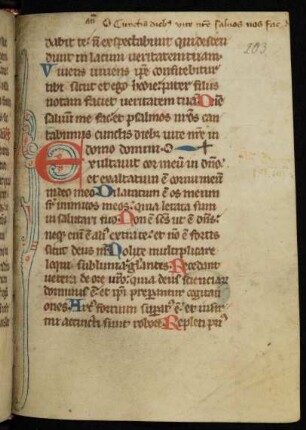 an̄ O Cunctis diebꝫ vite nr̄e saluos nos fac d
203
dabit te n̄ expectabunt qui descen
dunt in lacum veritatem tuam
Viuens viuens ip̄e confitebitur
tibi sicut et ego hodie pater filiis
notam faciet veritatem tuā Dn̄e
saluū me fac et psalmos nr̄os can
tabimus cunctis diebꝫ vite nr̄e in
domo domini
Exultauit cor meū in dn̄o
et exaltatum ē cornu meū
in deo meo Dilatatum ē os meum
sr̄ inimicos meos quia letata sum
in salutari tuo Non ē sc̄s ut ē dn̄s
neqꝫ eni ē alꝰ extra te et nō ē fortis
sicut deus nr̄ Nolite multiplicare
loqui sublimia gl̄antes Recedant
uetera de ore uro quia deus scienciarꝫ
dominus ē et ip̄i preparantur cogitati
ones Arcꝰ fortium supatꝰ ē et infir
mi accincti sunt robore Repleti pꝰ